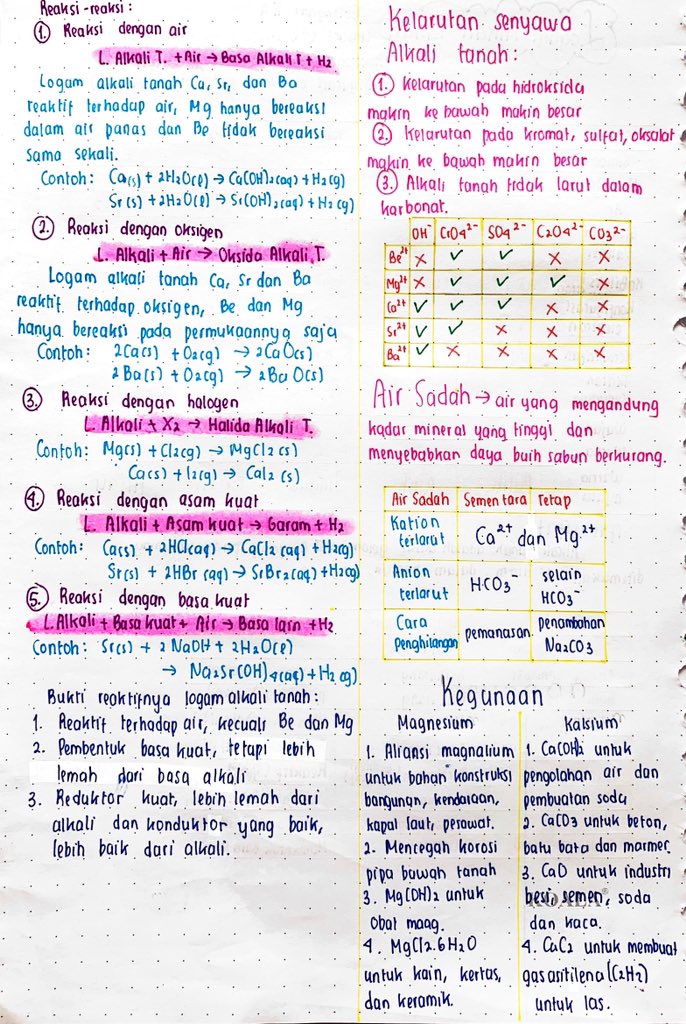 Reaksi-reaksi:
① Reaksi dengan air
L. Alkali T. + Air → Basa Alkali T + H2
Logam alkali tanah Ca, Sr, dan Ba
reaktif terhadap air, Mg hanya bereaksi
dalam air panas dan Be tidak bereaksi
sama sekali.
Contoh: Ca(s) + 2H2O(l) → Ca(OH)2(aq) + H2(g)
Sr(s) + 2H2O(l) → Sr(OH)2(aq) + H2(g)
② Reaksi dengan oksigen
L. Alkali + Air → Oksida Alkali T.
Logam alkali tanah Ca, Sr dan Ba
reaktif terhadap oksigen, Be dan Mg
hanya bereaksi pada permukaannya saja
Contoh: 2Ca(s) + O2(g) → 2CaO(s)
2Ba(s) + O2(g) → 2BaO(s)
③ Reaksi dengan halogen
L. Alkali + X2 → Halida Alkali T.
Contoh: Mg(s) + Cl2(g) → MgCl2(s)
Ca(s) + I2(g) → CaI2(s)
④ Reaksi dengan asam kuat
L. Alkali + Asam kuat → Garam + H2
Contoh: Ca(s) + 2HCl(aq) → CaCl2(aq) + H2(g)
Sr(s) + 2HBr(aq) → SrBr2(aq) + H2(g)
⑤ Reaksi dengan basa kuat
L. Alkali + Basa kuat + Air → Basa lain + H2
Contoh: Sr(s) + 2NaOH + 2H2O(l)
→ Na2Sr(OH)4(aq) + H2(g)
Bukti reaktifnya logam alkali tanah:
1. Reaktif terhadap air, kecuali Be dan Mg
2. Pembentuk basa kuat, tetapi lebih
lemah dari basa alkali
3. Reduktor kuat, lebih lemah dari
alkali dan konduktor yang baik,
lebih baik dari alkali.
Kelarutan senyawa
Alkali tanah:
① Kelarutan pada hidroksida
makin ke bawah makin besar
② Kelarutan pada kromat, sulfat, oksalat
makin ke bawah makin besar
③ Alkali tanah tidak larut dalam
karbonat.
OH⁻ CrO4²⁻ SO4²⁻ C2O4²⁻ CO3²⁻
Be²⁺ × ✓ ✓ × ×
Mg²⁺ × ✓ ✓ ✓ ×
Ca²⁺ ✓ ✓ ✓ × ×
Sr²⁺ ✓ ✓ × × ×
Ba²⁺ ✓ × × × ×
Air Sadah → air yang mengandung
kadar mineral yang tinggi dan
menyebabkan daya buih sabun berkurang.
Air Sadah Sementara Tetap
Kation terlarut Ca²⁺ dan Mg²⁺
Anion terlarut HCO3⁻ selain HCO3⁻
Cara Penghilangan pemanasan penambahan Na2CO3
Kegunaan
Magnesium
1. Aliansi magnalium
untuk bahan konstruksi
bangunan, kendaraan,
kapal laut, pesawat.
2. Mencegah korosi
pipa bawah tanah
3. Mg(OH)2 untuk
obat maag.
4. MgCl2.6H2O
untuk kain, kertas,
dan keramik.
Kalsium
1. Ca(OH)2 untuk
pengolahan air dan
pembuatan soda
2. CaCO3 untuk beton,
batu bata dan marmer.
3. CaO untuk industri
besi, semen, soda
dan kaca.
4. CaC2 untuk membuat
gas asitilena (C2H2)
untuk las.